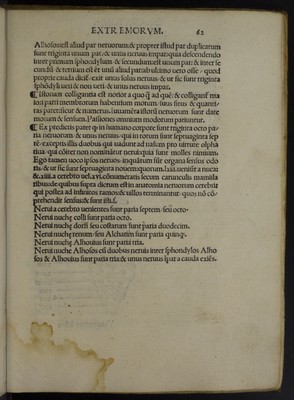 EXTREMORVM. 62
Alhosos est aliud par neruorum & propter istud par duplicatum
sunt triginta unum par: & unus neruus impar quia descendendo
inter primum sphondylum & secundum est unum par: & inter se
cundū & tertium est & unū aliud
propriæ cauda exit unus solus neruus: & ut sic sunt triginta
sphōdyli uei & non uerī & unus neruus impar.
Istorum colligantia est notior a quo & ad quē: & colligant ma
iori parti membrorum habentium motum: suus situs & quanti
tas parentur & numerus. iuuamēta istorū neruorum sunt dare
motum & sensum. Passiones omnium modorum patiuntur.
Ex prædictis patet in humano corpore sunt triginta octo pa
ria neruorum & unus neruus: qui in totum sunt septuaginta sep
tē: exceptis illis duobus qui uadunt ad nasum pro uirtute olpha
tiua: qui cōiter non nominātur nerui: quia sunt molles nimium.
Ego tamen uoco ipsos neruos: inquātum sūt organa sensus odo
ris: & ut sic sunt septuaginta nouem quorum .lxiii. uenisit a nucas
& .xiiii. a cerebro uel .xvi. cōnumeratis secum carunculis mamilla
ribus: de quibus supra dictum est in anatomia neruorum cerebri:
qui postea ad infinitos ramos & uillos terminantur quos nō cō
prehendit sensus: & sunt isti.
Nerui a cerebro uenientes sunt paria septem: seu octo.
Nerui nuchę colli sunt paria octo.
Nerui nuchę dorsi seu costarum sunt paria duodecim.
Nerui nuchę renum: seu Alchatim sunt paria quinq.
Nerui nuchę Alhouius sunt paria tria.
Nerui nuchę Alhosos eū duobus neruis inter sphondylos Alho
sos & Alhouius sunt paria tria & unus neruus īpar a cauda exiēs.